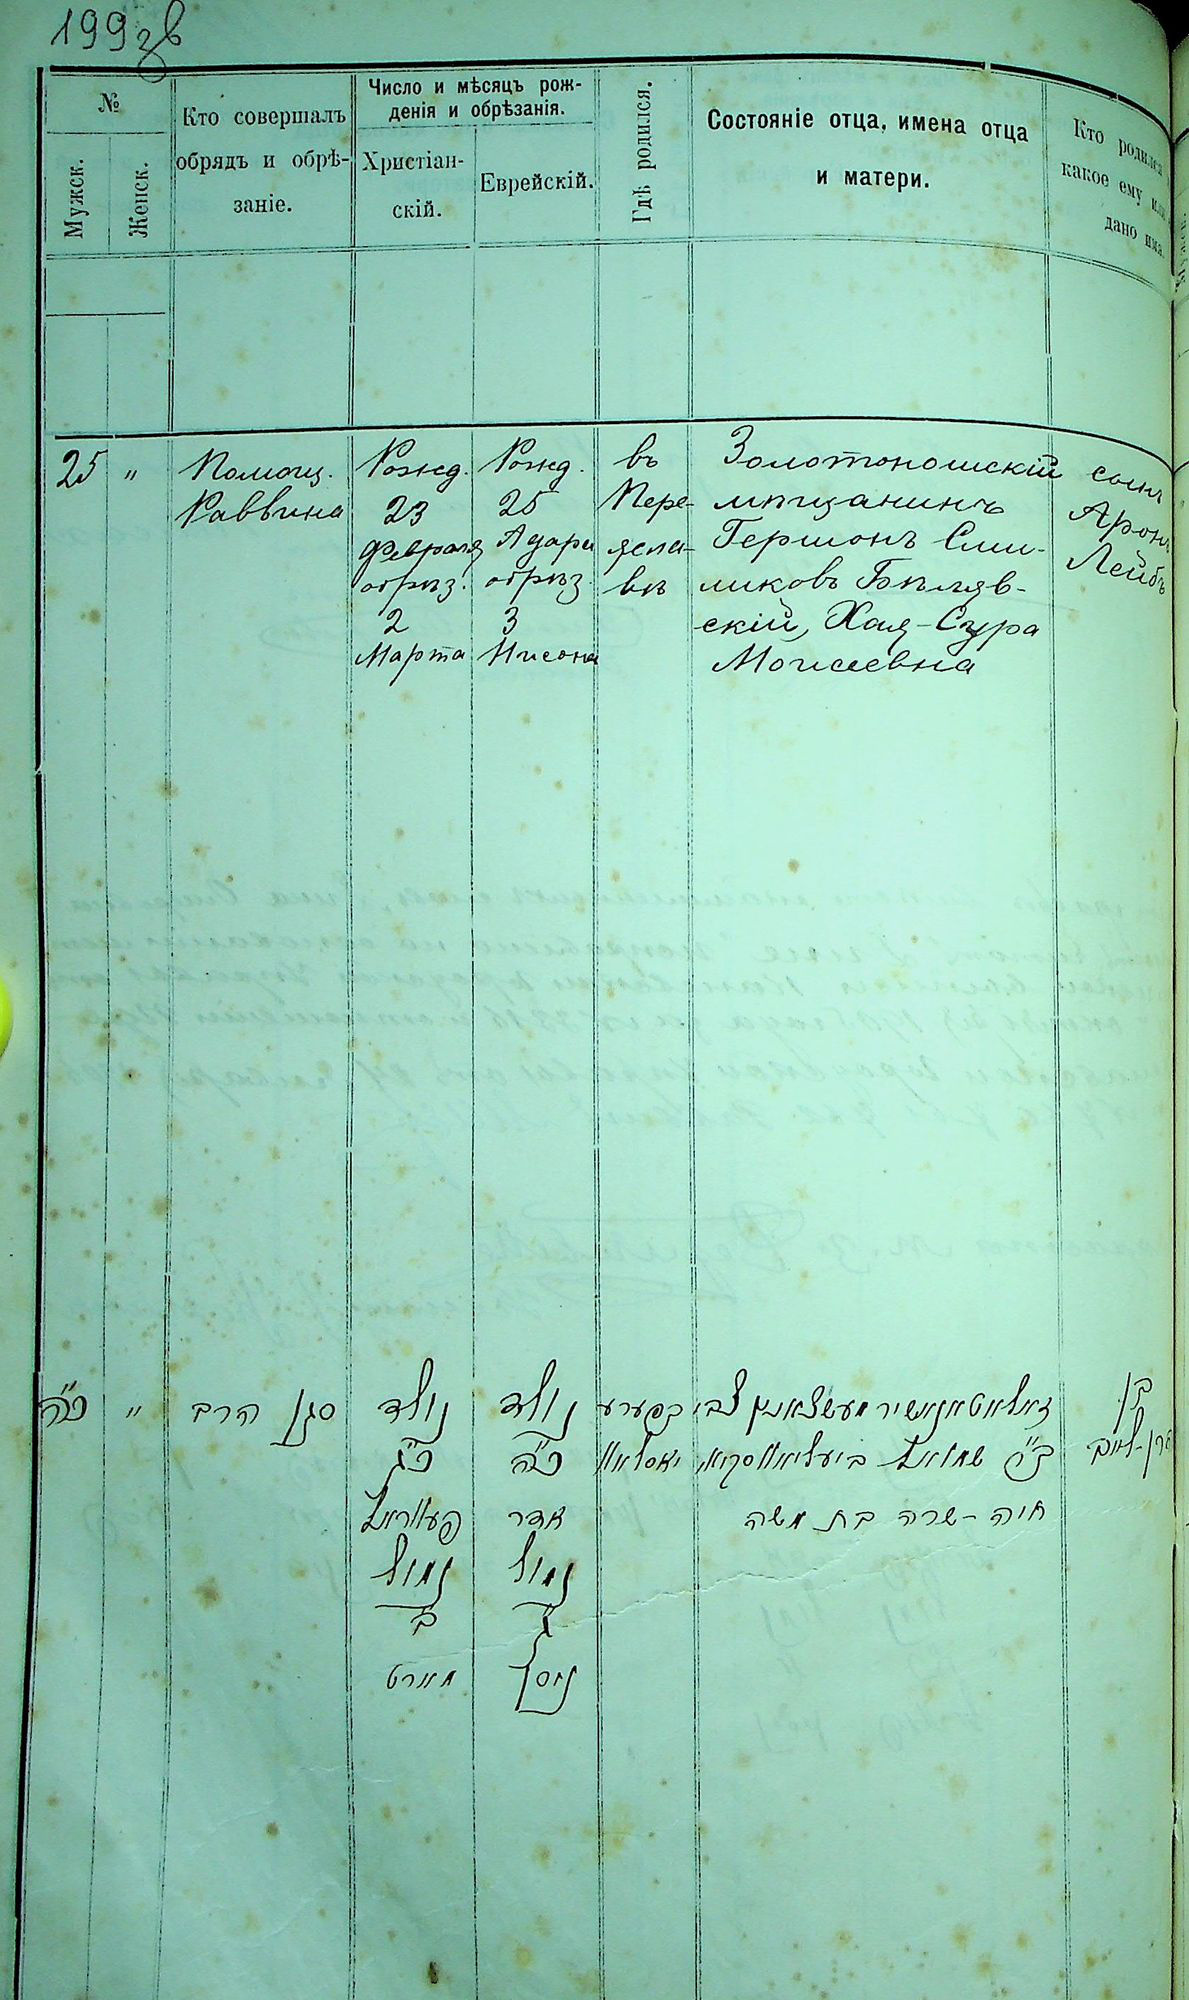 199 зв
№
Мужск.
Женск.
Кто совершалъ
обрядъ и обрѣ-
заніе.
Число и мѣсяцъ рож-
денія и обрѣзанія.
Христіан-
скій.
Еврейскій.
Гдѣ родился.
Состояніе отца, имена отца
и матери.
Кто родился
какое ему или
дано имя
25 "
Помощ.
Раввина
Рожд.
23
Февраля
обрѣз.
2
Марта
Рожд.
25
Адара
обрѣз.
3
Нисона
въ
Пере-
ясла-
вѣ
Золотоношскій
мѣщанинъ
Гершонъ
ликовъ Бѣляв-
скій, Хая-Сура
Моисеевна
сынъ
Аронъ
Лейбъ
כ"ה "
סגן הרב
נולד
כ"ג
פעוראל
נמול
ב
מארט
נולד
כ"ה
אדר
נמול
ג
ניסן
בפערע
יאסלאוו
זאלאטאנאשיר מעשצאנין צבי
ביעליאווסקי
חיה-שרה בת משה
בן
ארן-לייב